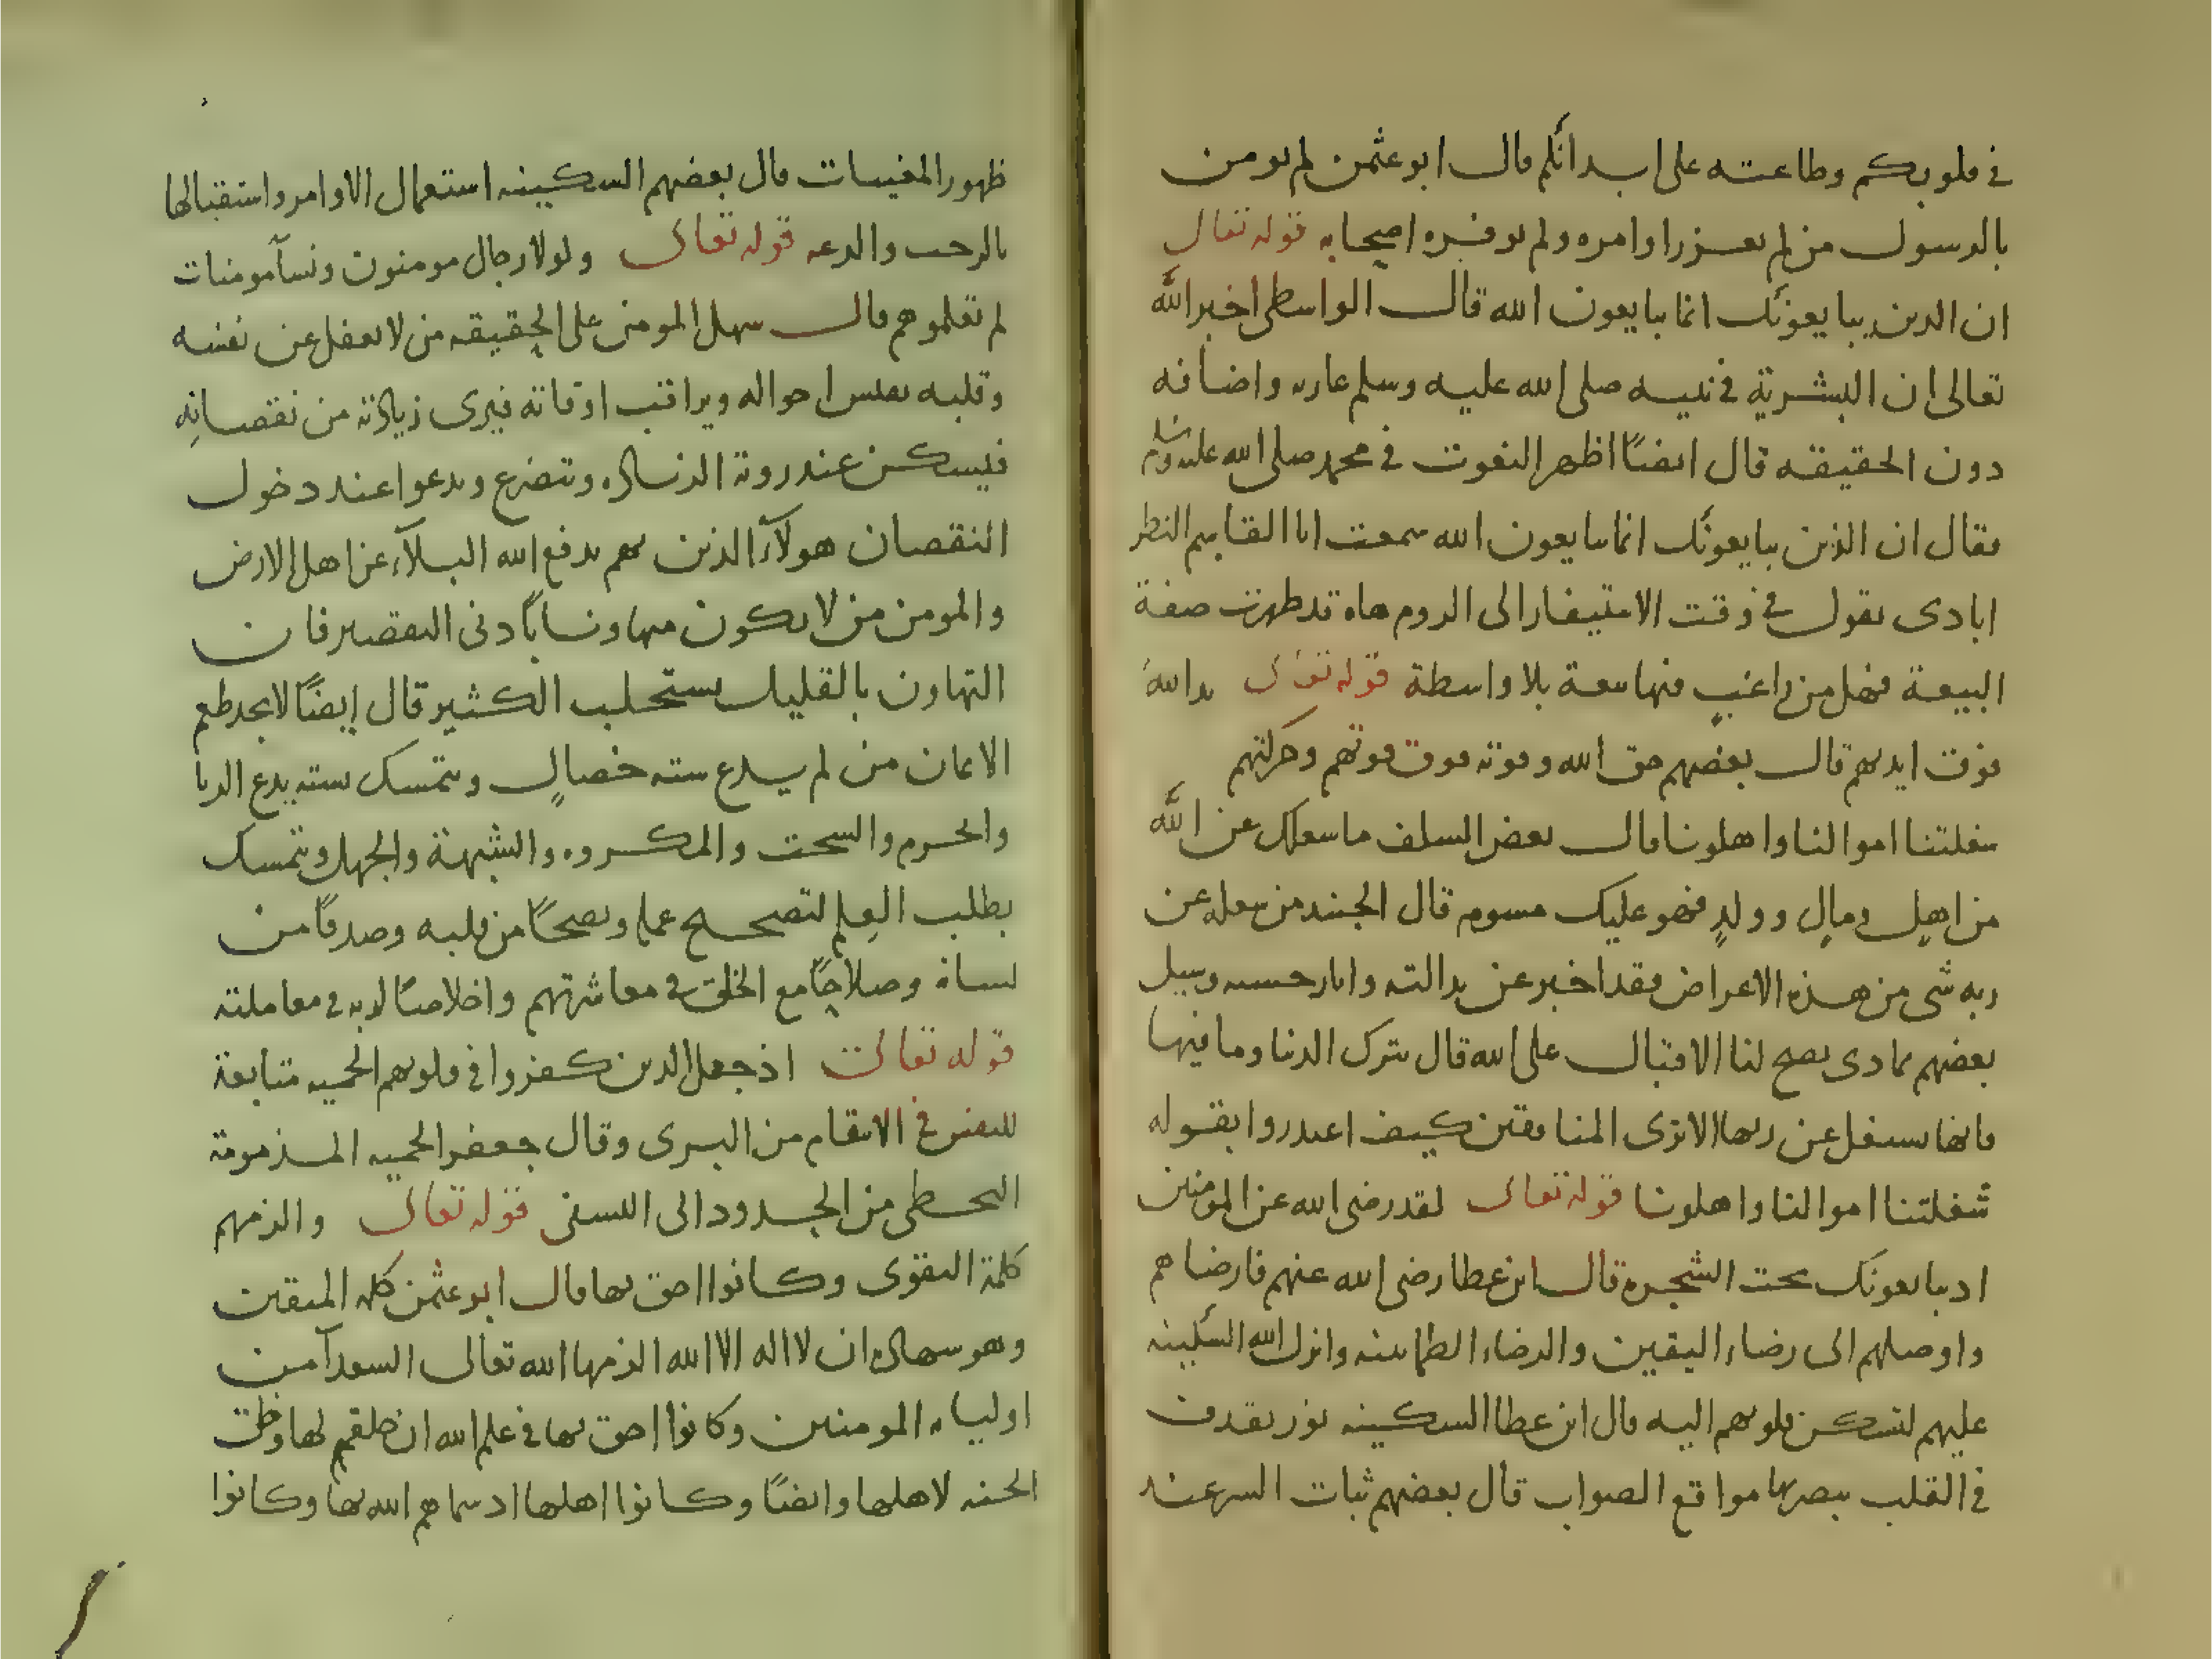 في قلوبكم وطاعته على ابدانكم قال ابو عثمن لم يومن
بالرسول من لم يعزر اوامره ولم يوقره اصحابه قوله تعالى
ان الذين يبايعونك انما يبايعون الله قال الواسطى اخبر الله
تعالى ان البشرية في نبيه صلى الله عليه وسلم عارية واضافه
دون الحقيقه قال ايضًا اظهر النعوت في محمد صلى الله عليه وسلم
فقال ان الذين يبايعونك انما يبايعون الله سمعت ابا القاسم النصر
ابادى يقول في وقت الاستنفار الى الروم هاه قد ظهرت صفة
البيعة فهل من راغب فيها بيعة بلا واسطة قوله تعالى يد الله
فوق ايديهم قال بعضهم حق الله وقوته فوق قوتهم وحركتهم
شغلتنا اموالنا واهلونا قال بعض السلف ما شغلك عن الله
من اهل ومال وولد فهو عليك مسوم قال الجنيد من شغله عن
ربه شى من هذه الاعراض فقد اخبر عن نذالته وسيل
بعضهم بما دى يصح لنا الاقبال على الله قال بترك الدنيا وما فيها
فانها تشغل عن ربها الا ترى المنافقين كيف اعتذروا بقوله
شغلتنا اموالنا واهلونا قوله تعالى لقد رضى الله عن المومنين
اذ يبايعونك تحت الشجرة قال ابن عطا رضى الله عنهم فارضاهم
واوصلهم الى رضاء اليقين والرضاء الطمانينه وانزل الله السكينه
عليهم لتسكن قلوبهم اليه قال ابن عطا السكينه نور يقذف
في القلب يبصر بها مواقع الصواب قال بعضهم ثبات السر عند
ظهور المغيبات قال بعضهم السكينه استعمال الاوامر واستقبالها
بالرحب والدعه قوله تعالى ولولا رجال مومنون ونسآ مومنات
لم تعلموهم قال سهل المومن على الحقيقه من لا يغفل عن نفسه
وقلبه يفتش احواله ويراقب اوقاته فيرى زيادته من نقصانه
فيسكن عند روية الزياده ويتضرع ويدعوا عند دخول
النقصان هولآء الذين بهم يدفع الله البلآء عن اهل الارض
والمومن من لا يكون متهاونا بادنى التقصير فان
التهاون بالقليل يستجلب الكثير قال ايضًا لا يجد طعم
الايمان من لم يدع سته خصال ويتمسك بسته يدع الربا
والحرم والسحت والمكروه والشبهة والجهل ويتمسك
بطلب العلم لتصحيح عمله ونصحًا من قلبه وصدقًا من
لسانه وصلاحًا مع الخلق في معاشرتهم واخلاصًا لربه في معاملته
قوله تعالى اذ جعل الذين كفروا في قلوبهم الحميه متابعة
للنفس في الانتقام من البرى وقال جعفر الحميه المذمومة
التخطى من الحدود الى التشفى قوله تعالى والزمهم
كلمة التقوى وكانوا احق بها قال ابو عثمن كلمه المتقين
وهو شهاده ان لا اله الا الله الزمها الله تعالى السعدآ من
اولياء المومنين وكانوا احق بها في علم الله ان خلقهم لها وخلق
الجنه لاهلها وايضًا وكانوا اهلها اذ سماهم الله بها وكانوا